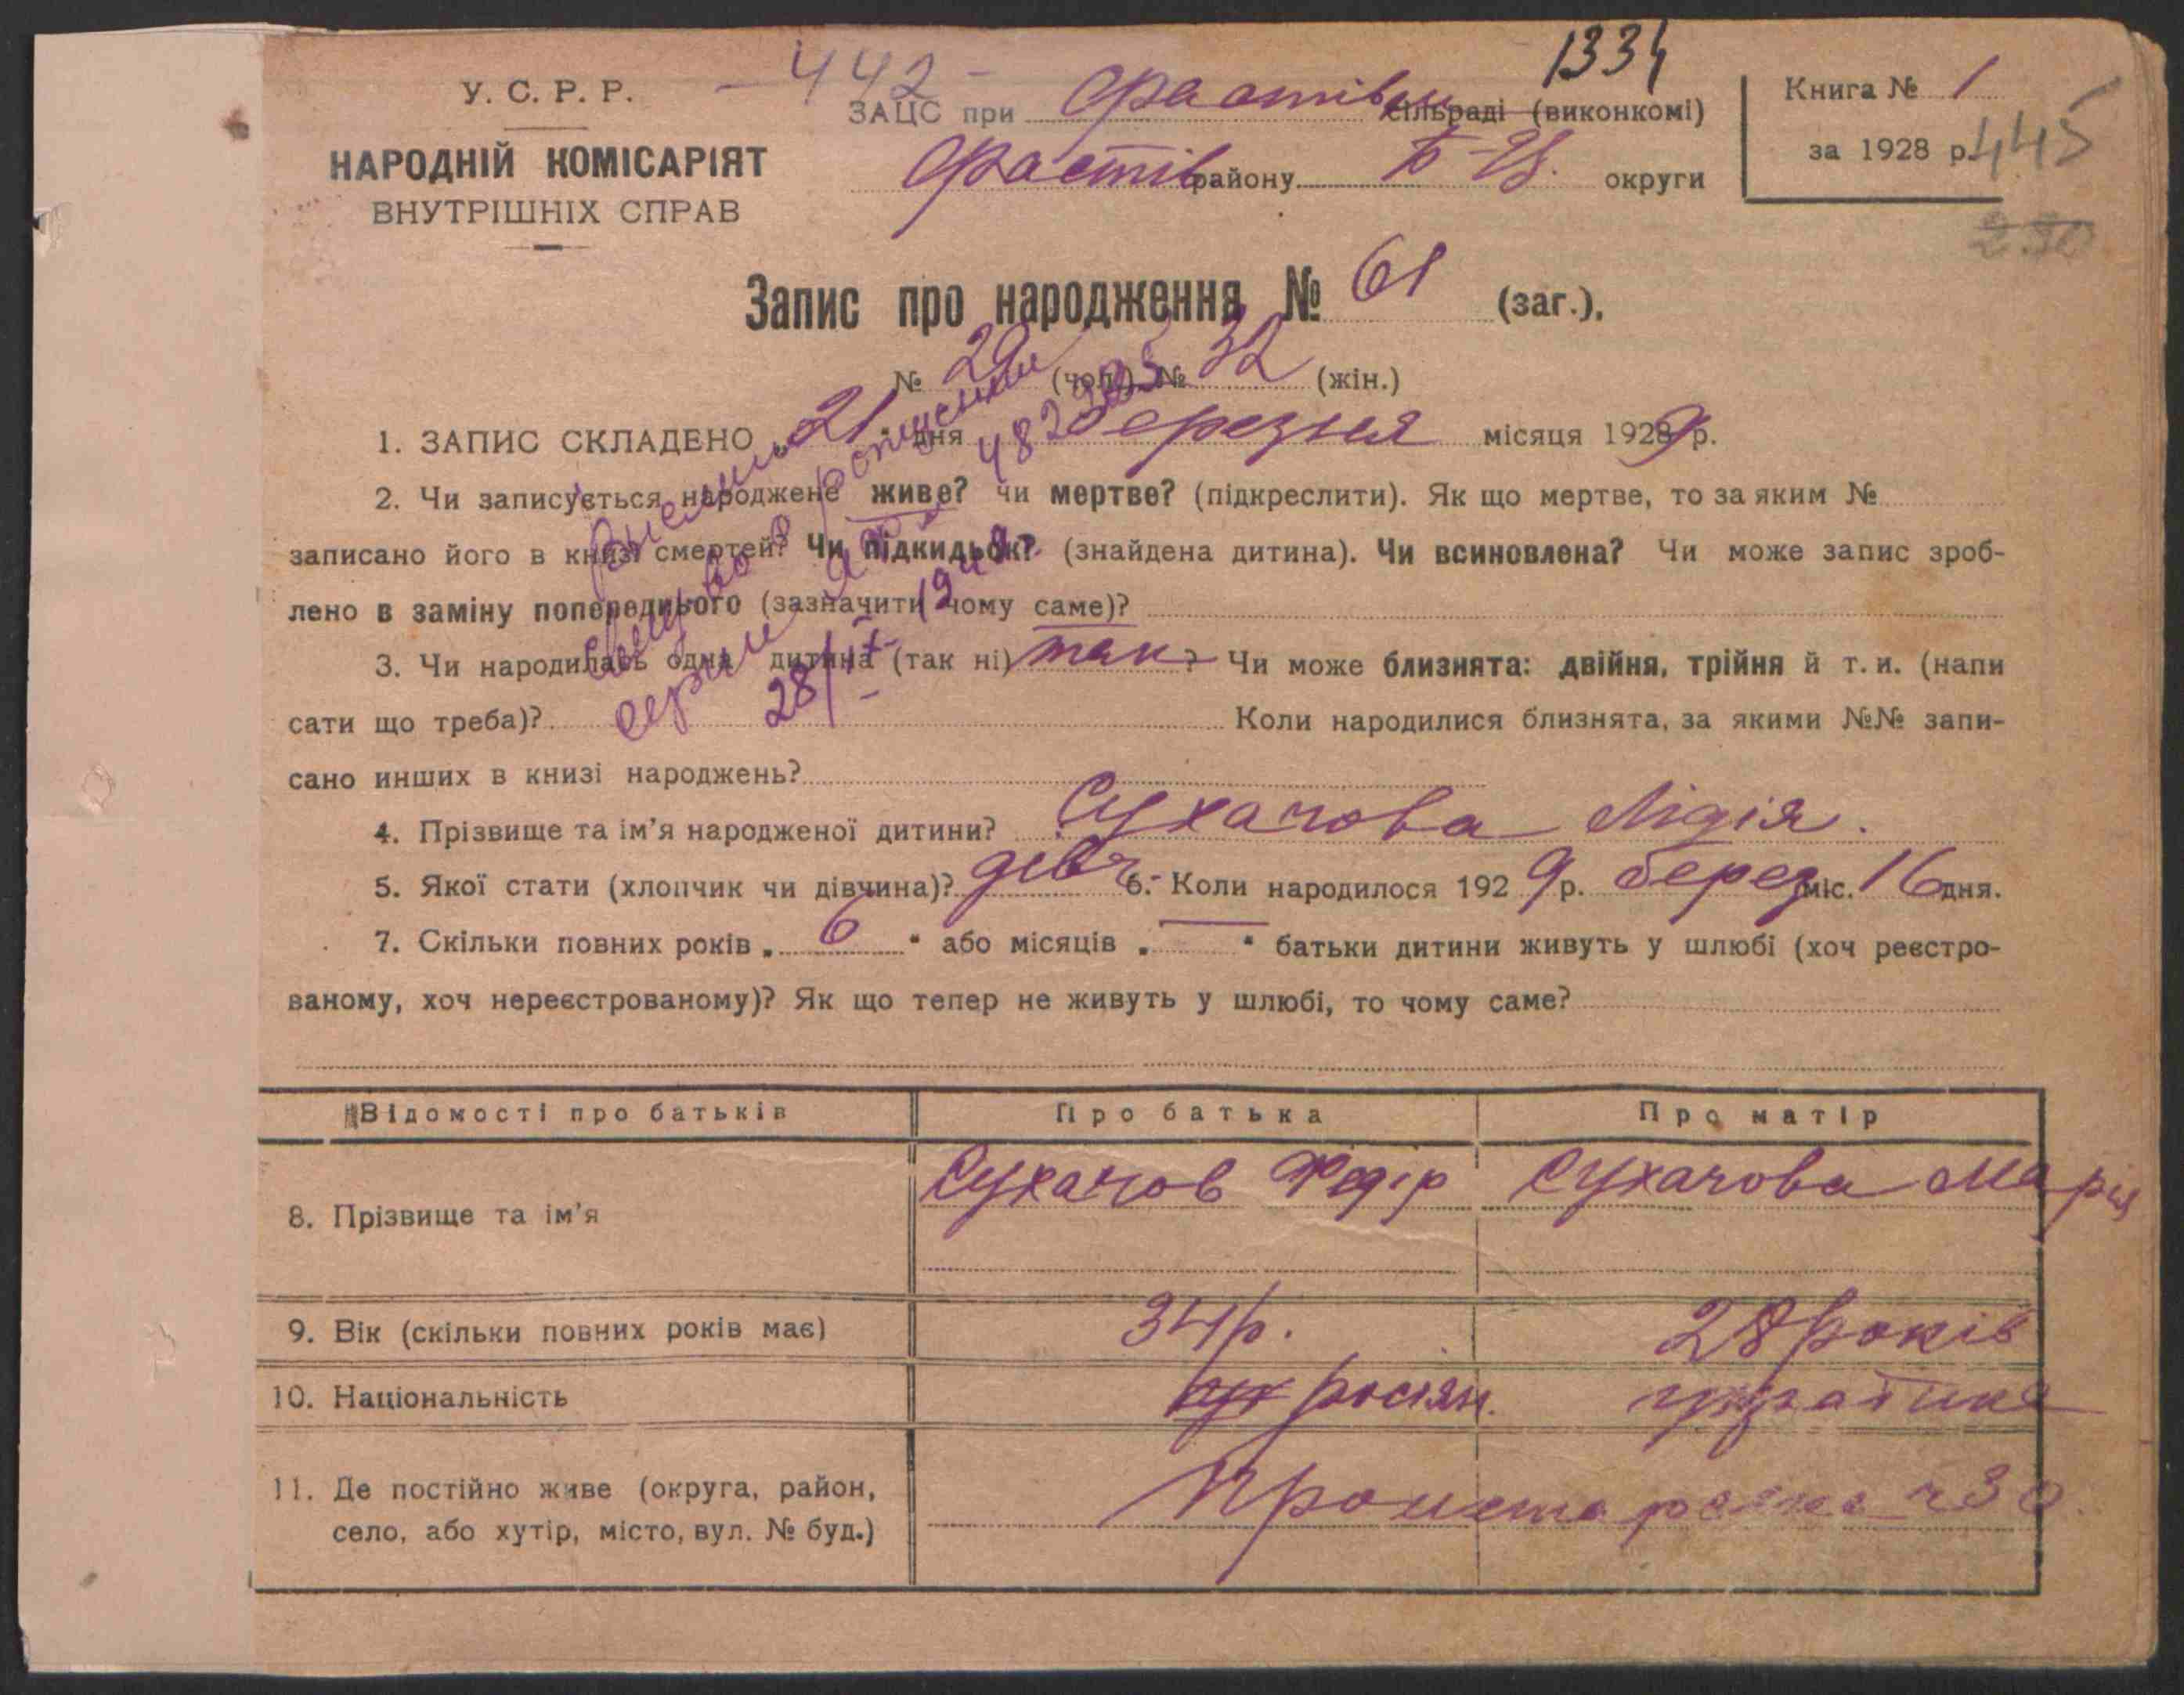 У. С. Р. Р.
НАРОДНІЙ КОМІСАРІЯТ
ВНУТРІШНІХ СПРАВ
— 442 —
1334
ЗАЦС при Фастівськ сільраді (виконкомі)
Фастів району Б-Ц. округи
Книга № 1
за 1928 р.
445
250
Запис про народження № 61 (заг.),
№ 29 (чол.) № 32 (жін.)
1. ЗАПИС СКЛАДЕНО „21" дня березня місяця 1929 р.
2. Чи записується народжене живе? чи мертве? (підкреслити). Як що мертве, то за яким №
записано його в книзі смертей? Чи підкидьок? (знайдена дитина). Чи всиновлена? Чи може запис зроб-
лено в заміну попереднього (зазначити чому саме)?
3. Чи народилась одна дитина (так ні) так? Чи може близнята: двійня, трійня й т. и. (напи
сати що треба)? Коли народилися близнята, за якими №№ запи-
сано инших в книзі народжень?
28/IX- 1948
4. Прізвище та ім'я народженої дитини? Сухачова Лідія.
5. Якої стати (хлопчик чи дівчина)? дівч. 6. Коли народилося 1929 р. берез міс. 16 дня.
7. Скільки повних років „6" або місяців „ " батьки дитини живуть у шлюбі (хоч реєстро-
ваному, хоч нереєстрованому)? Як що тепер не живуть у шлюбі, то чому саме?
Відомості про батьків Про батька Про матір
8. Прізвище та ім'я Сухачов Федір Сухачова Марія
9. Вік (скільки повних років має) 34 р. 28 років
10. Національність укр росіян. українка
11. Де постійно живе (округа, район,
село, або хутір, місто, вул. № буд.)